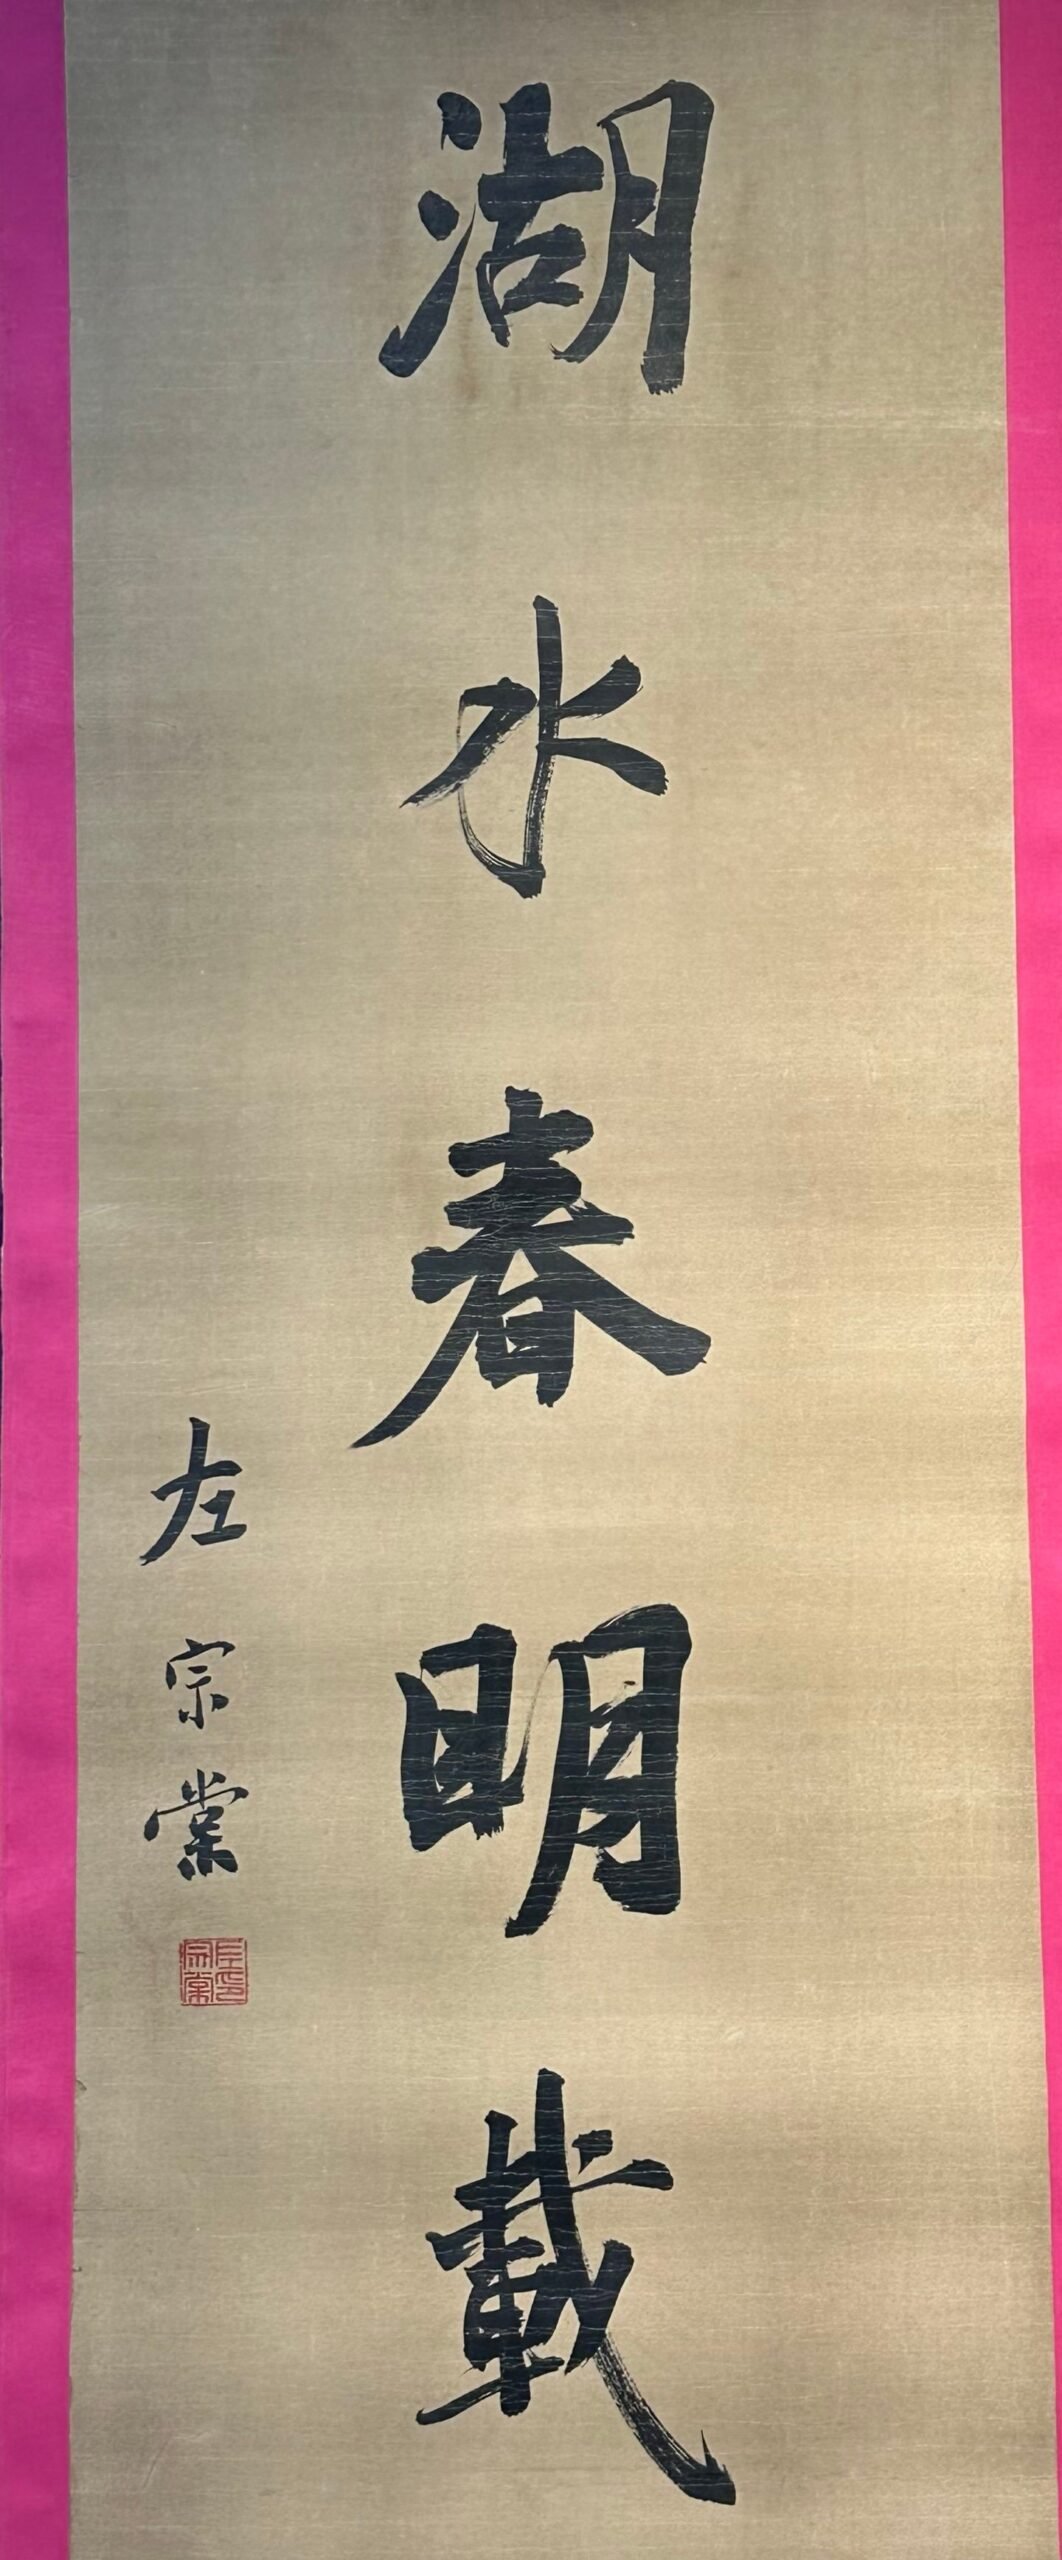 湖水春明載
左宗棠
左宗棠印